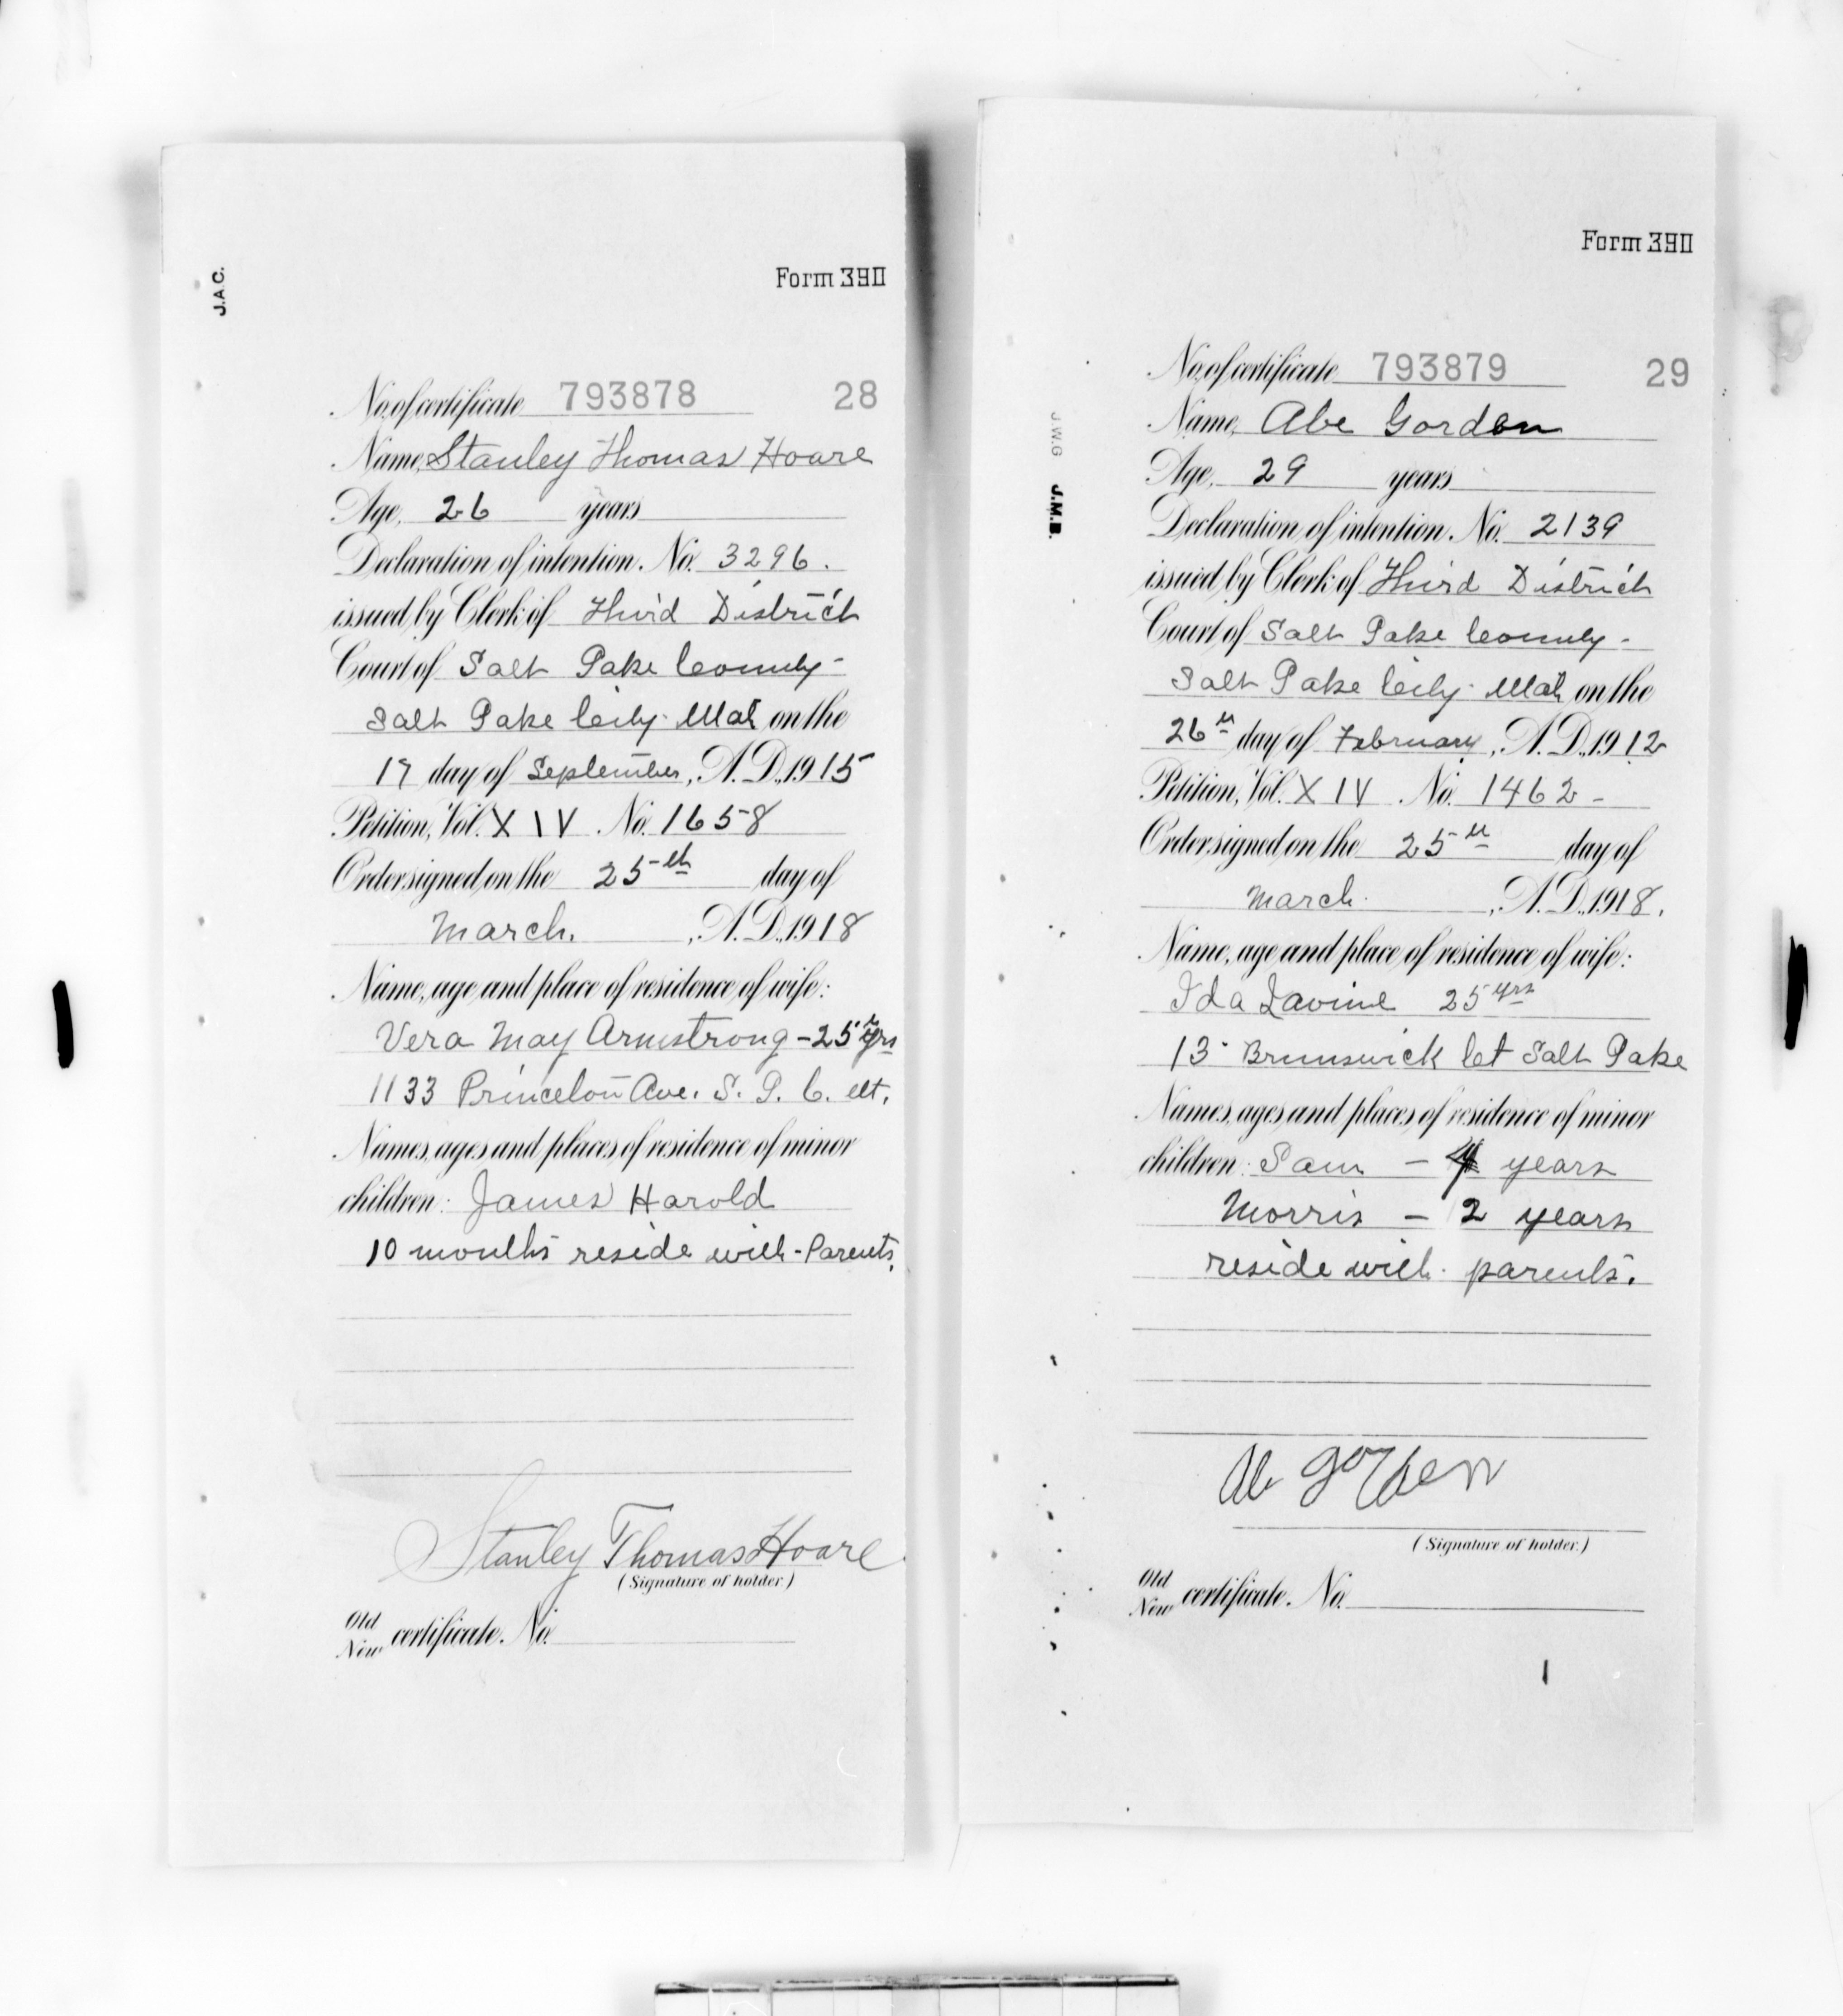 J.A.C.
Form 390
No. of certificate 793878 28
Name, Stanley Thomas Hoare
Age, 26 years
Declaration of intention. No. 3296.
issued by Clerk of Third District
Court of Salt Lake County -
Salt Lake City Utah on the
17 day of September, A.D., 1915
Petition, Vol. XIV No. 1658
Order signed on the 25th day of
March. , A.D., 1918
Name, age and place of residence of wife:
Vera May Armstrong - 25 yrs
1133 Princeton Ave. S. L. C. Ut.
Names, ages and places of residence of minor
children: James Harold
10 months reside with Parents.
Stanley Thomas Hoare
(Signature of holder.)
Old
New certificate. No.
Form 390
J.W.G J.M.B.
No. of certificate 793879 29
Name, Abe Gorden
Age, 29 years
Declaration of intention. No. 2139
issued by Clerk of Third District
Court of Salt Lake County -
Salt Lake City Utah on the
26th day of February, A.D., 1912
Petition, Vol. XIV No. 1462 -
Order signed on the 25th day of
March , A.D., 1918.
Name, age and place of residence of wife:
Ida Lavine 25 yrs
13 Brunswick Ct Salt Lake
Names, ages and places of residence of minor
children: Sam - 4 years
Morris - 2 years
reside with parents.
Ab gorden
(Signature of holder.)
Old
New certificate. No.